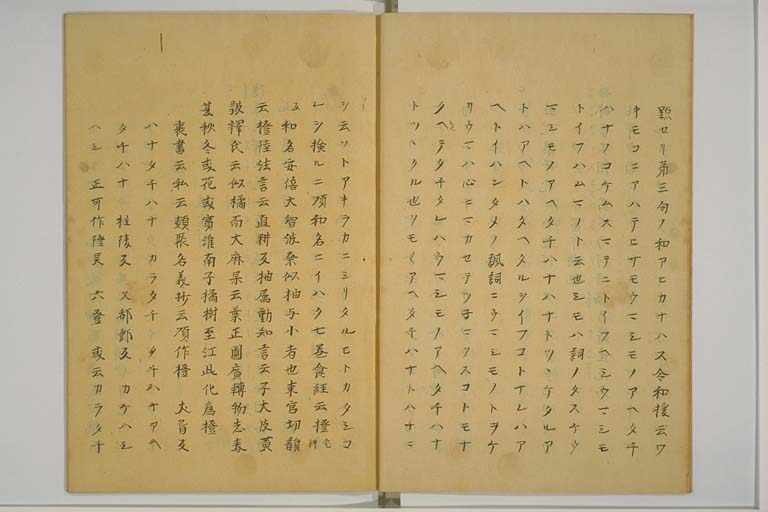 顕セリ第三句ノ和アヒカナハス令和接云ワ
キモコニアハテヒサモウマシモノアヘタチ
ハナノコケムスマテニトイフヘシウマシモ
トイフハムマノト云也シモハ詞ノタスケウ
マシモノアヘタチハナハナトツヽケタルア
トハアヘトハタヘタルシイフコトナレハア
ヘトイハンタメノ諷詞ニウマシモノトヲケ
リウマハ心ニマカセテツ子ニツスコトモナ
タヘタチタレハウマシモノアヘタチハナ
トツヽクル也ツモ〱アヘタチハナトハナニ
シ云ツトアキラカニミリタルヒトカタシコ
レシ検ルニ項和名ニイハク七巻食経云橙 宅耕
反和名安倍太知波奈似柚与小者也東宮切韻
云橙陸法言云直耕反柚属動知言云子大皮黄
皺釋氏云似橘而大麻杲云葉正圓廣轉物志春
夏秋冬或花或實淮南子橘樹至江北化為橙
裏書云私云類聚名義抄云項作橙 丈耳反
ハナタチハナ カラタチ タチハナアヘ
タチハナ 柱陵反 又都鄧反 カケハシ
ハシ 正可作隥昊 六登 或云カラタチ